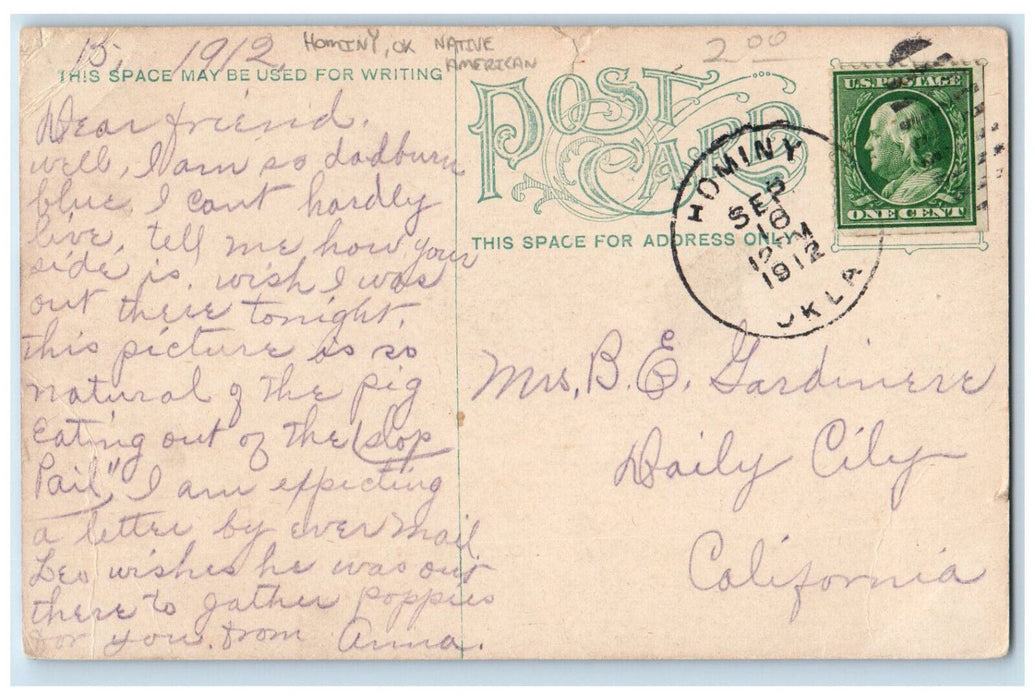 15, 1912,
HOMINY, OK NATIVE
AMERICAN
2 00
THIS SPACE MAY BE USED FOR WRITING
Dear friend.
well, I am so dadburn
blue I cant hardly
live, tell me how your
side is. wish I was
out there tonight.
this picture is so
natural of the pig
eating out of the "slop
Pail" I am expecting
a letter by ever mail
Leo wishes he was out
there to gather poppies
for you. from Anna.
POST
CARD
THIS SPACE FOR ADDRESS ONLY
HOMINY
SEP
16
1912
OKLA
U.S. POSTAGE
ONE CENT
Mrs, B. E. Gardiniere
Daily City
California